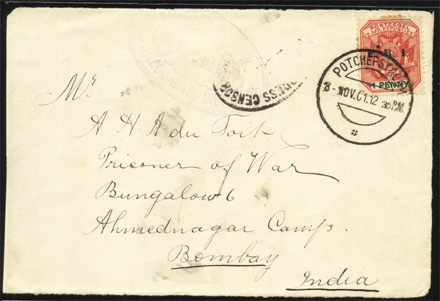 E.R.I.
1 PENNY
POTCHEFSTROOM
NOV. 01. 12
PRESS CENSOR
Mr
A H A du Toit
Prisoner of War
Bungalow 6
Ahmednagar Camp.
Bombay
India